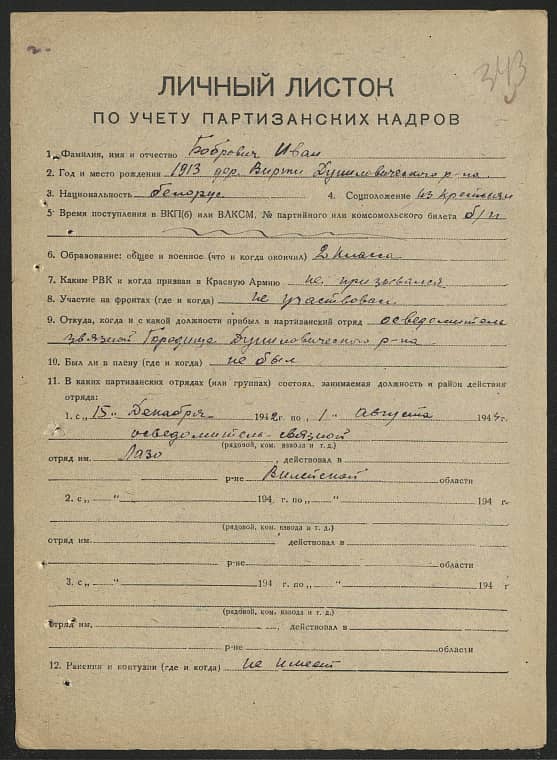 343
ЛИЧНЫЙ ЛИСТОК
ПО УЧЕТУ ПАРТИЗАНСКИХ КАДРОВ
1. Фамилия, имя и отчество Бобрович Иван
2. Год и место рождения 1913 дер. Вирти Дуниловического р-на
3. Национальность белорус 4. Соцположение из крестьян
5. Время поступления в ВКП(б) или ВЛКСМ, № партийного или комсомольского билета б/п
6. Образование: общее и военное (что и когда окончил) 2 класса
7. Каким РВК и когда призван в Красную Армию не призывался
8. Участие на фронтах (где и когда) не участвовал
9. Откуда, когда и с какой должности прибыл в партизанский отряд осведомитель
связной Городище Дуниловического р-на
10. Был ли в плену (где и когда) не был
11. В каких партизанских отрядах (или группах) состоял, занимаемая должность и район действия
отряда:
1. с „15" Декабря 1942 г. по „1" Августа 1944 г.
осведомитель-связной
(рядовой, ком. взвода и т. д.)
отряд им. Лазо, действовал в
р-не Вилейской области
2. с „ " 194 г. по „ " 194 г.
(рядовой, ком. взвода и т. д.)
отряд им. действовал в
р-не области
3. с „ " 194 г. по „ " 194 г
(рядовой, ком. взвода и т. д.)
отряд им. , действовал в
р-не области
12. Ранения и контузии (где и когда) не имеет